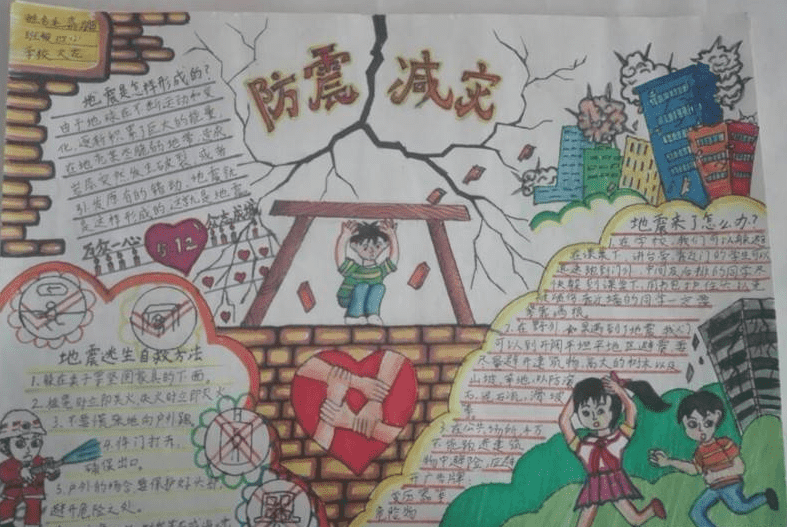 班级 四
学校
防震减灾
地震是怎样形成的?
由于地球在不断运动和变
化,逐渐积累了巨大的能量,
在地壳某些脆弱的地带,造成
岩层突然发生破裂,或者
引发原有的错动,地震就
是这样形成的,这就是地震
万众一心
5.12
众志成城
地震逃生自救方法
1.躲在桌子等坚固家具的下面。
2.摇晃时立即关火,失火时立即灭火
3.不要慌张地向户外跑
4.将门打开,
确保出口。
5.户外的场合,要保护好头部,
避开危险之处。
地震来了怎么办?
1.在学校,我们可以躲避
在课桌下、讲台旁,靠近门的学生可以
迅速跑到门外,中间及后排的同学尽
快躲到课桌下,用书包护住头以
靠墙的同学一定要
紧靠墙根。
2.在野外,如果遇到了地震,我们
可以到开阔平地平地区避震,要
尽量避开建筑物,高大的树木以及
山坡、草地,以防滚
石、泥石流、滑坡
等
3.在公共场所,千万
不能跑进建筑
物中避险,应避
开广告牌、
危险物